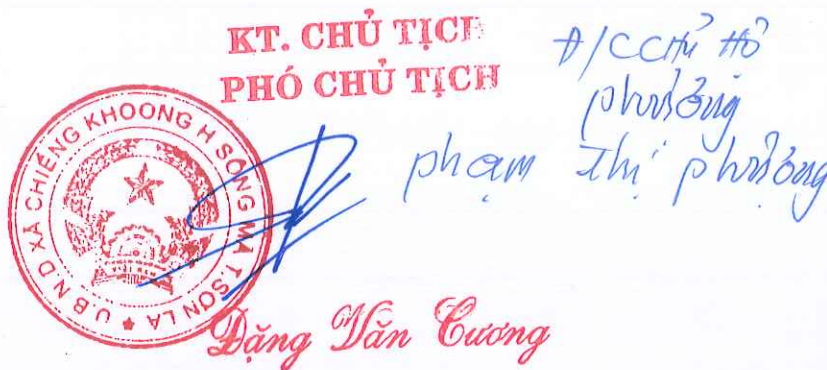 KT. CHỦ TỊCH
PHÓ CHỦ TỊCH
Đ/C CHỦ HỘ
phượng
phạm thị phượng
U.B.N.D XÃ CHIỀNG KHOONG H SÔNG MÃ T.SƠN LA
Đặng Văn Cương